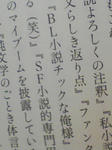 説よろしくの注釈』『私小
うらしき返り点』『ファンタ
『BL小説チックな俺様』
（笑）』『SF小説的専門
のマイブームを披露してい
『純文学のごとき体言